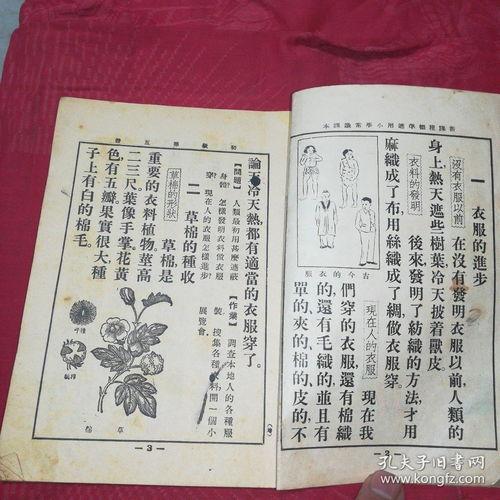 新課程標準適用小學常識課本
一 衣服的進步
沒有衣服以前 在沒有發明衣服以前,人類的
身上熱天遮些樹葉冷天披着獸皮。
衣料的發明 後來發明了紡織的方法才用
麻織成了布,用絲織成了綢做衣服穿。
現在人的衣服 現在我
們穿的衣服,還有棉織
的,還有毛織的,並且有
單的,夾的,棉的,皮的,不
古今的衣服
2
初級第五冊
論天冷天熱都有適當的衣服穿了。
【問題】人類最初用甚麼遮蔽
身體?怎樣發明衣料做衣服
穿?現在人的衣服怎樣進步?
【作業】調查本地人的各種服
裝,搜集各種衣料開一個小
展覽會。
二 草棉的種收
草棉的形狀 草棉是
重要的衣料植物,莖高
二三尺,葉像手掌,花黃
色,有五瓣,果實很大,種
子上有白的棉毛。
草棉
3
孔夫子旧书网
www.kongfz.com